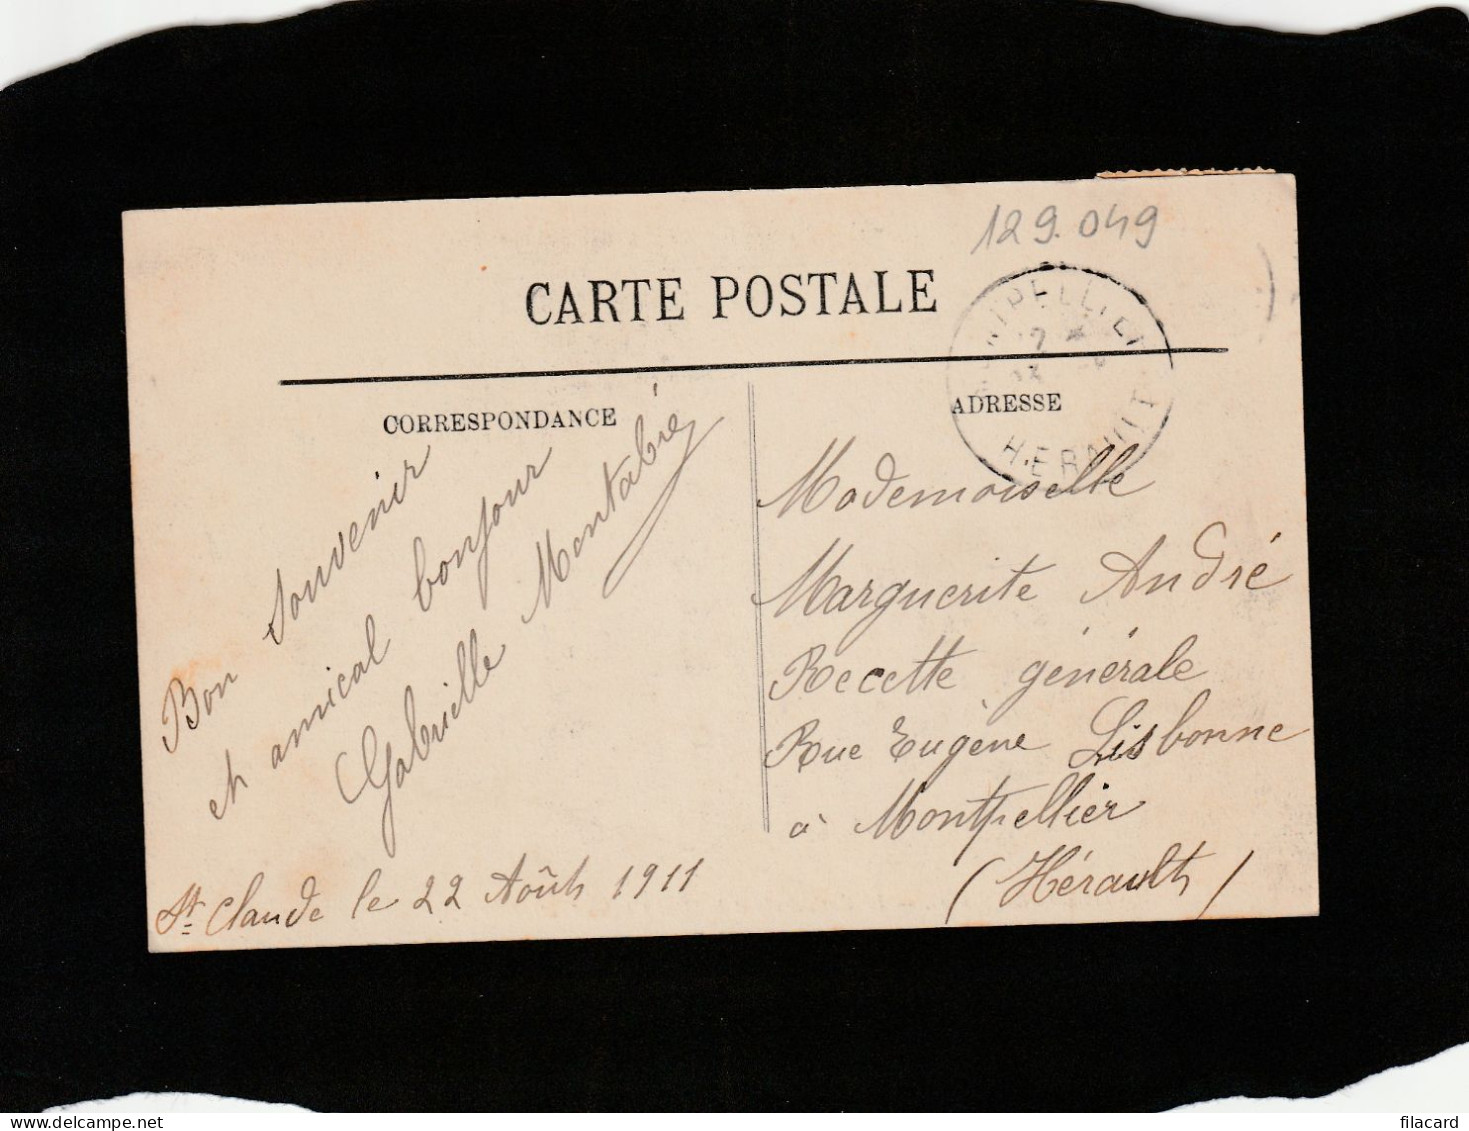 129.049
CARTE POSTALE
MONTPELLIER
HERAULT
CORRESPONDANCE
ADRESSE
Bon souvenir
et amical bonjour
Gabrielle Montabré
St Claude le 22 Août 1911
Mademoiselle
Marguerite André
Recette générale
Rue Eugène Lisbonne
à Montpellier
(Hérault)
filacard